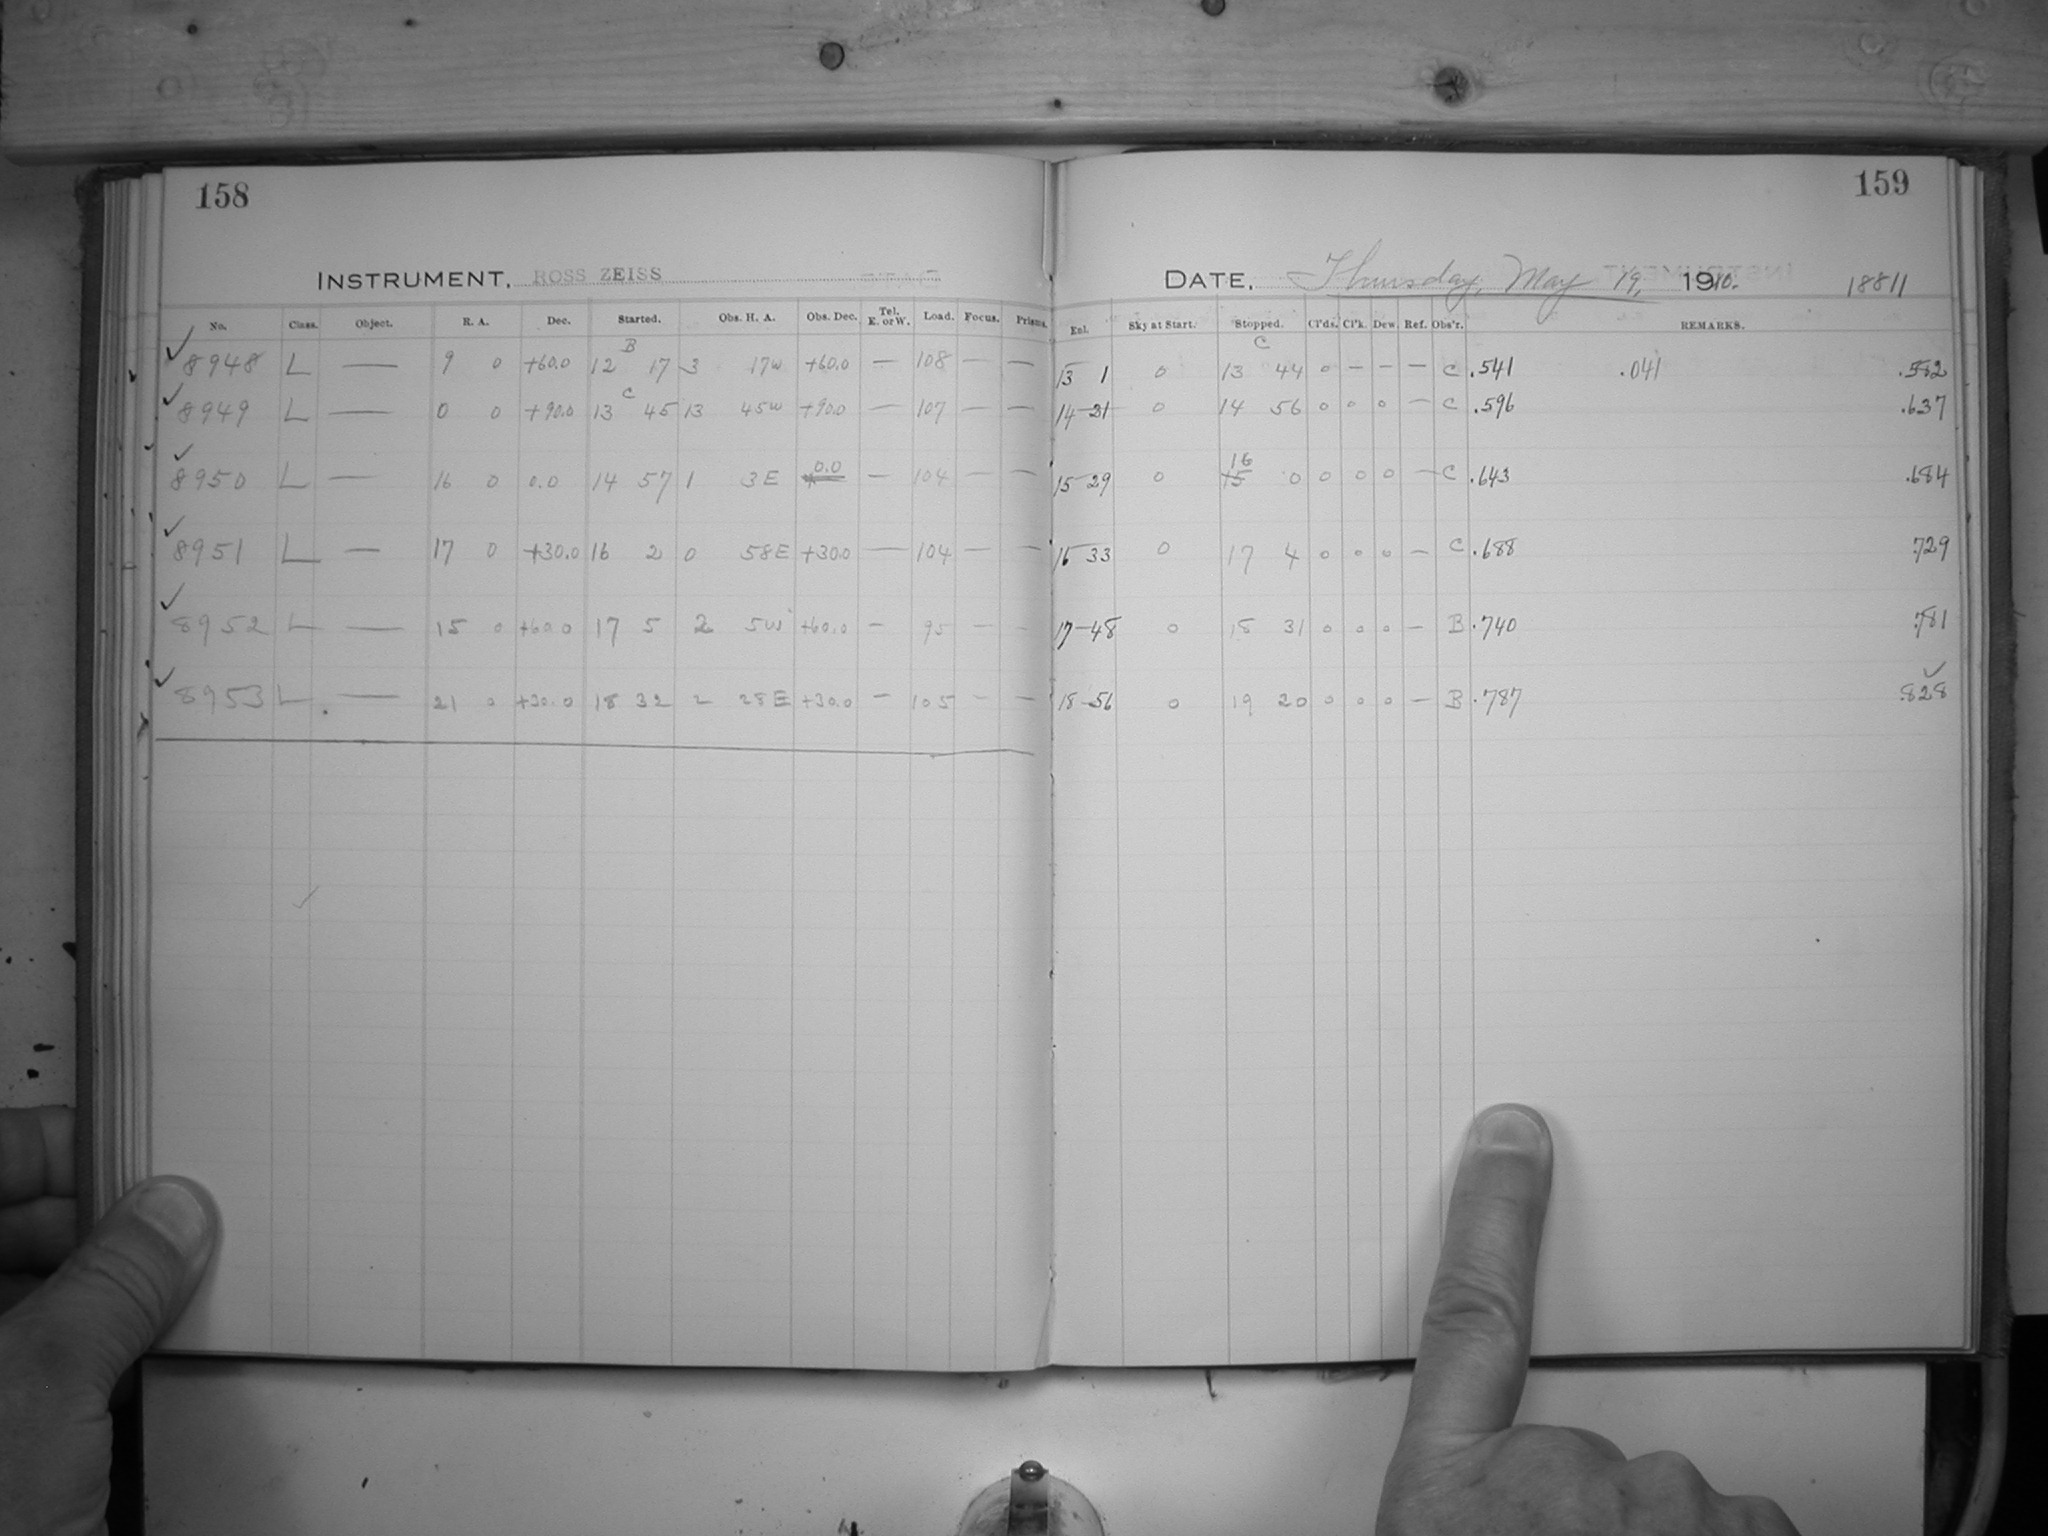 158
INSTRUMENT, ROSS ZEISS
No. Class. Object. R. A. Dec. Started. Obs. H. A. Obs. Dec. Tel. E. or W. Load. Focus. Prisms.
✓ 8948 L — 9 0 +60.0 B 12 17 3 17W +60.0 — 108 — —
✓ 8949 L — 0 0 +90.0 C 13 45 13 45W +90.0 — 107 — —
✓ 8950 L — 16 0 0.0 14 57 1 3E 0.0 — 104 — —
✓ 8951 L — 17 0 +30.0 16 2 0 58E +30.0 — 104 — —
✓ 8952 L — 15 0 +60.0 17 5 2 5W +60.0 — 95 — —
✓ 8953 L — 21 0 +30.0 18 32 2 28E +30.0 — 105 — —
✓
159
DATE, Thursday, May 19, 1910. 18811
Sky at Start. Stopped. Cl'ds. Cl'k. Dew. Ref. Obs'r. REMARKS.
13 1 0 C 13 44 0 — — — C .541 .041 .582
14-21 0 14 56 0 0 0 — C .596 .637
15-29 0 16 0 0 0 0 — C .643 .684
16 33 0 17 4 0 0 0 — C .688 .729
17-48 0 18 31 0 0 0 — B .740 .781
18-56 0 19 20 0 0 0 — B .787 .828 ✓